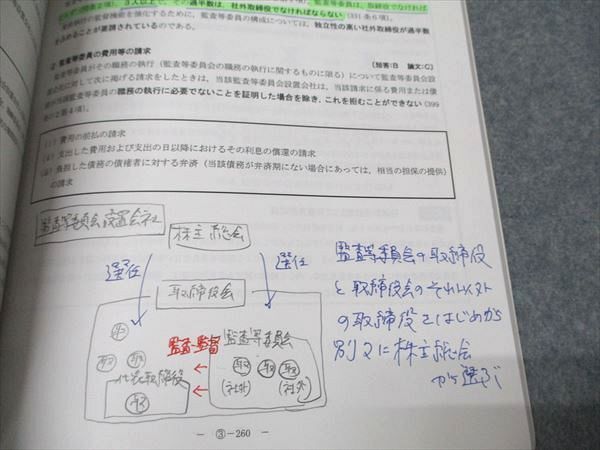 3人以上で、その過半数は、社外取締役でなければならない（331条6項）。
の監督機能を強化するために、監査等委員の構成については、独立性の高い社外取締役が過半数
を占めることが要請されているのである。
② 監査等委員の費用等の請求
［短答：B 論文：C］
監査等委員がその職務の執行（監査等委員会の職務の執行に関するものに限る）について監査等委員会設
置会社に対して次に掲げる請求をしたときは、当該監査等委員会設置会社は、当該請求に係る費用または債
務が当該監査等委員の職務の執行に必要でないことを証明した場合を除き、これを拒むことができない（399
条の2第4項）。
費用の前払の請求
支出した費用および支出の日以降におけるその利息の償還の請求
負担した債務の債権者に対する弁済（当該債務が弁済期にない場合にあっては、相当の担保の提供）
の請求
監査等委員会設置会社
株主総会
選任
選任
取締役会
監査・監督
監査等委員会
取
取 取
取 取 取
代表取締役
取
（社外）
（社外）
監査等委員会の取締役
と取締役会のそれ以外
の取締役をはじめから
別々に株主総会
から選ぶ
― ③―260 ―